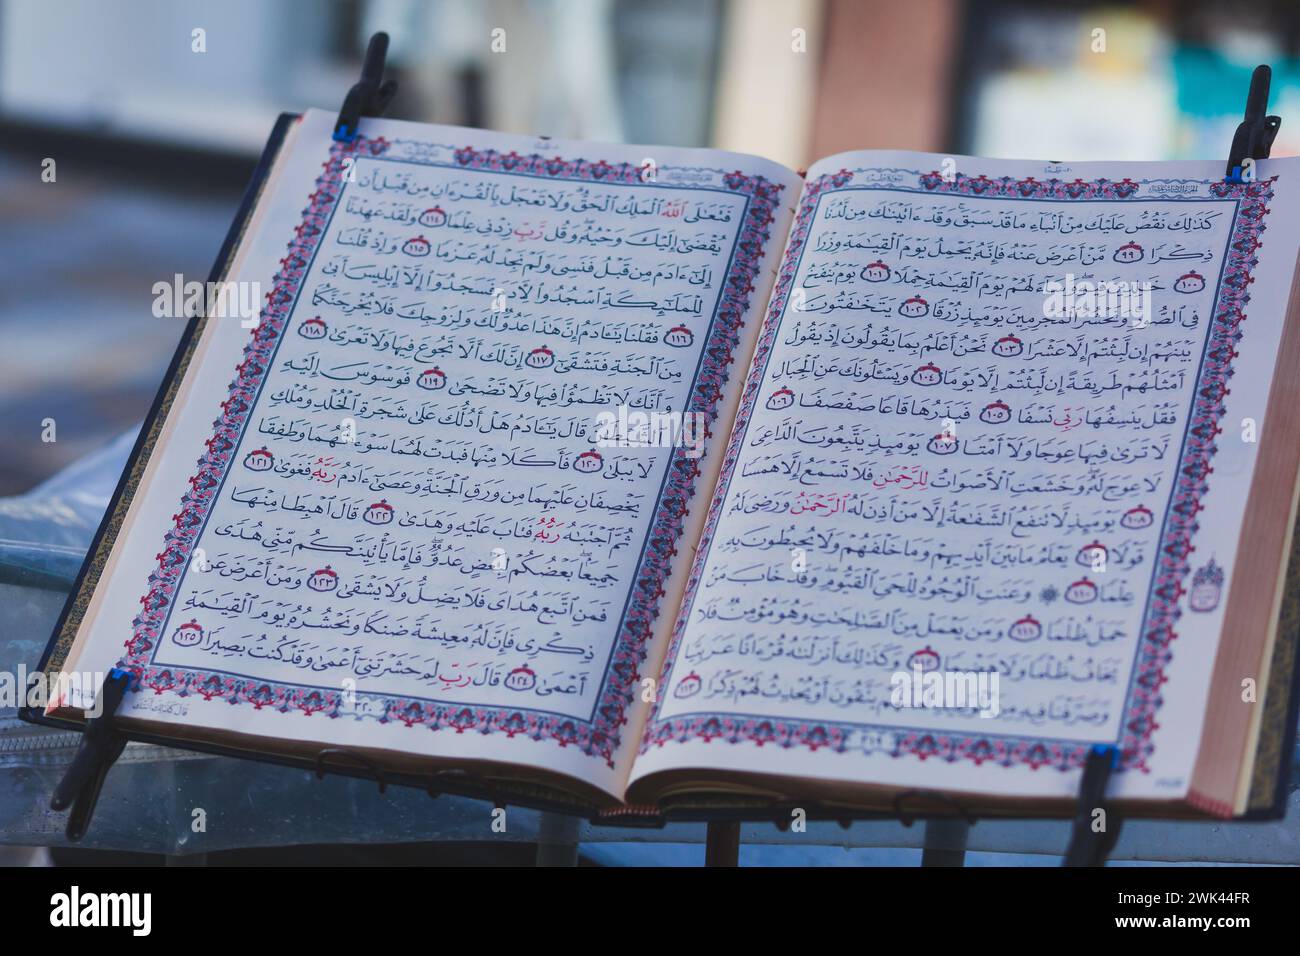 كَذَٰلِكَ نَقُصُّ عَلَيْكَ مِنْ أَنۢبَآءِ مَا قَدْ سَبَقَ ۚ وَقَدْ ءَاتَيْنَٰكَ مِن لَّدُنَّا
ذِكْرًا ٩٩ مَّنْ أَعْرَضَ عَنْهُ فَإِنَّهُۥ يَحْمِلُ يَوْمَ ٱلْقِيَٰمَةِ وِزْرًا
١٠٠ خَٰلِدِينَ فِيهِ ۖ وَسَآءَ لَهُمْ يَوْمَ ٱلْقِيَٰمَةِ حِمْلًا ١٠١ يَوْمَ يُنفَخُ
فِى ٱلصُّورِ ۚ وَنَحْشُرُ ٱلْمُجْرِمِينَ يَوْمَئِذٍ زُرْقًا ١٠٢ يَتَخَٰفَتُونَ
بَيْنَهُمْ إِن لَّبِثْتُمْ إِلَّا عَشْرًا ١٠٣ نَّحْنُ أَعْلَمُ بِمَا يَقُولُونَ إِذْ يَقُولُ
أَمْثَلُهُمْ طَرِيقَةً إِن لَّبِثْتُمْ إِلَّا يَوْمًا ١٠٤ وَيَسْـَٔلُونَكَ عَنِ ٱلْجِبَالِ
فَقُلْ يَنسِفُهَا رَبِّى نَسْفًا ١٠٥ فَيَذَرُهَا قَاعًا صَفْصَفًا ١٠٦
لَّا تَرَىٰ فِيهَا عِوَجًا وَلَآ أَمْتًا ١٠٧ يَوْمَئِذٍ يَتَّبِعُونَ ٱلدَّاعِىَ
لَا عِوَجَ لَهُۥ ۖ وَخَشَعَتِ ٱلْأَصْوَاتُ لِلرَّحْمَٰنِ فَلَا تَسْمَعُ إِلَّا هَمْسًا
١٠٨ يَوْمَئِذٍ لَّا تَنفَعُ ٱلشَّفَٰعَةُ إِلَّا مَنْ أَذِنَ لَهُ ٱلرَّحْمَٰنُ وَرَضِىَ لَهُۥ
قَوْلًا ١٠٩ يَعْلَمُ مَا بَيْنَ أَيْدِيهِمْ وَمَا خَلْفَهُمْ وَلَا يُحِيطُونَ بِهِۦ
عِلْمًا ١١٠ ۞ وَعَنَتِ ٱلْوُجُوهُ لِلْحَىِّ ٱلْقَيُّومِ ۖ وَقَدْ خَابَ مَنْ
حَمَلَ ظُلْمًا ١١١ وَمَن يَعْمَلْ مِنَ ٱلصَّٰلِحَٰتِ وَهُوَ مُؤْمِنٌ فَلَا
يَخَافُ ظُلْمًا وَلَا هَضْمًا ١١٢ وَكَذَٰلِكَ أَنزَلْنَٰهُ قُرْءَانًا عَرَبِيًّا
وَصَرَّفْنَا فِيهِ مِنَ ٱلْوَعِيدِ لَعَلَّهُمْ يَتَّقُونَ أَوْ يُحْدِثُ لَهُمْ ذِكْرًا ١١٣
٣١٩
فَتَعَٰلَى ٱللَّهُ ٱلْمَلِكُ ٱلْحَقُّ ۗ وَلَا تَعْجَلْ بِٱلْقُرْءَانِ مِن قَبْلِ أَن
يُقْضَىٰٓ إِلَيْكَ وَحْيُهُۥ ۖ وَقُل رَّبِّ زِدْنِى عِلْمًا ١١٤ وَلَقَدْ عَهِدْنَآ
إِلَىٰٓ ءَادَمَ مِن قَبْلُ فَنَسِىَ وَلَمْ نَجِدْ لَهُۥ عَزْمًا ١١٥ وَإِذْ قُلْنَا
لِلْمَلَٰٓئِكَةِ ٱسْجُدُوا۟ لِءَادَمَ فَسَجَدُوٓا۟ إِلَّآ إِبْلِيسَ أَبَىٰ
١١٦ فَقُلْنَا يَٰٓـَٔادَمُ إِنَّ هَٰذَا عَدُوٌّ لَّكَ وَلِزَوْجِكَ فَلَا يُخْرِجَنَّكُمَا
مِنَ ٱلْجَنَّةِ فَتَشْقَىٰٓ ١١٧ إِنَّ لَكَ أَلَّا تَجُوعَ فِيهَا وَلَا تَعْرَىٰ ١١٨
وَأَنَّكَ لَا تَظْمَؤُا۟ فِيهَا وَلَا تَضْحَىٰ ١١٩ فَوَسْوَسَ إِلَيْهِ
ٱلشَّيْطَٰنُ قَالَ يَٰٓـَٔادَمُ هَلْ أَدُلُّكَ عَلَىٰ شَجَرَةِ ٱلْخُلْدِ وَمُلْكٍ
لَّا يَبْلَىٰ ١٢٠ فَأَكَلَا مِنْهَا فَبَدَتْ لَهُمَا سَوْءَٰتُهُمَا وَطَفِقَا
يَخْصِفَانِ عَلَيْهِمَا مِن وَرَقِ ٱلْجَنَّةِ ۚ وَعَصَىٰٓ ءَادَمُ رَبَّهُۥ فَغَوَىٰ ١٢١
ثُمَّ ٱجْتَبَٰهُ رَبُّهُۥ فَتَابَ عَلَيْهِ وَهَدَىٰ ١٢٢ قَالَ ٱهْبِطَا مِنْهَا
جَمِيعًۢا ۖ بَعْضُكُمْ لِبَعْضٍ عَدُوٌّ ۖ فَإِمَّا يَأْتِيَنَّكُم مِّنِّى هُدًى
فَمَنِ ٱتَّبَعَ هُدَاىَ فَلَا يَضِلُّ وَلَا يَشْقَىٰ ١٢٣ وَمَنْ أَعْرَضَ عَن
ذِكْرِى فَإِنَّ لَهُۥ مَعِيشَةً ضَنكًا وَنَحْشُرُهُۥ يَوْمَ ٱلْقِيَٰمَةِ
أَعْمَىٰ ١٢٤ قَالَ رَبِّ لِمَ حَشَرْتَنِىٓ أَعْمَىٰ وَقَدْ كُنتُ بَصِيرًا ١٢٥
٣٢٠
alamy
alamy
Image ID: 2WK44FR
www.alamy.com